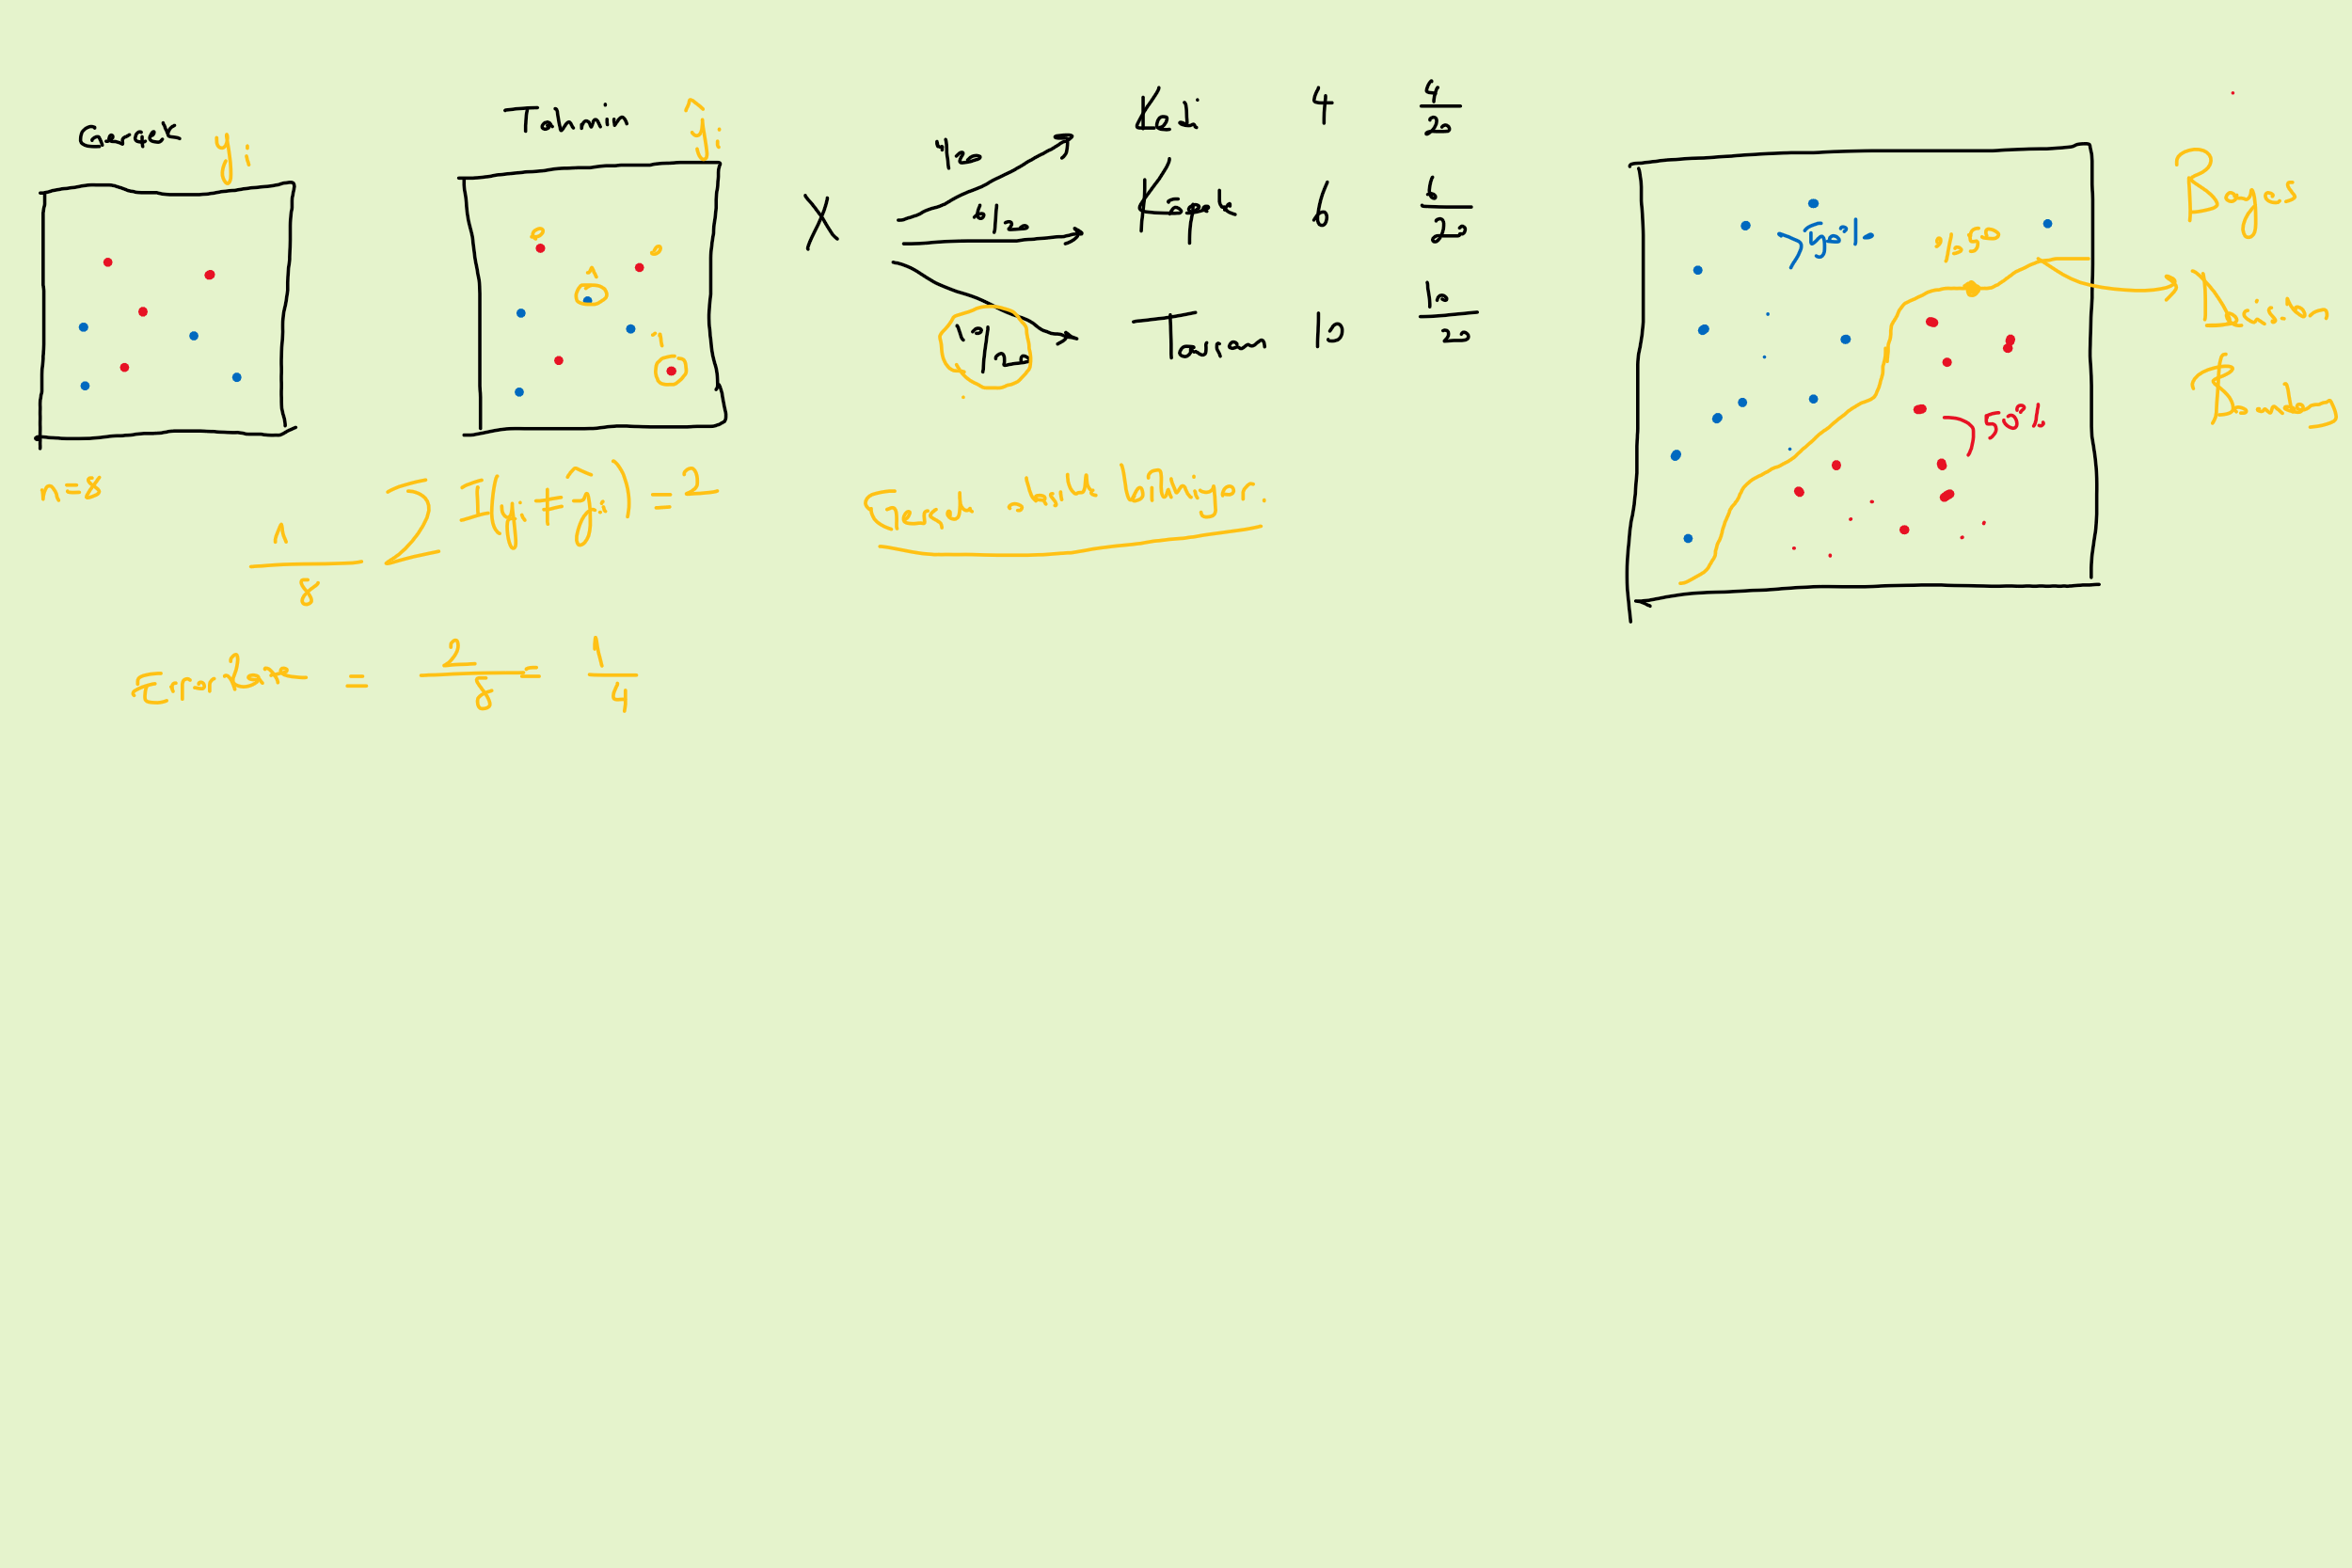 Gerçek yi
Tahmin ŷi
0
0
1
1
n=8
1/8 Σ I(yi ≠ ŷi) = 2
Error Rate = 2/8 = 1/4
X
4/20
6/20
10/20
Kedi 4 4/20
Köpek 6 6/20
Tavşan 10 10/20
Gerçek olasılık bilinmiyor.
>50%
%50
>50%
Bayes
Decision
Boundary